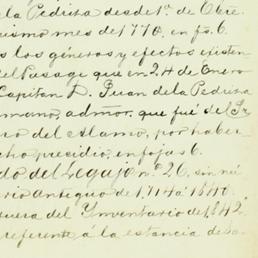 la Pedriza desde 1º. de Obre.
mismo mes de 1770, en fs. 6.
los géneros y efectos existen
del Pasage que en 24 de Enero
Capitan D. Juan de la Pedriza
mano, admor. que fué del
ro del Alamo, por haber
cho presidio, en fojas 6.
do del Legajo nº 26, sin nú
rio antiguo de 1,714 á 1840.
uesa del Ynventario del 842
referente á la estancia de